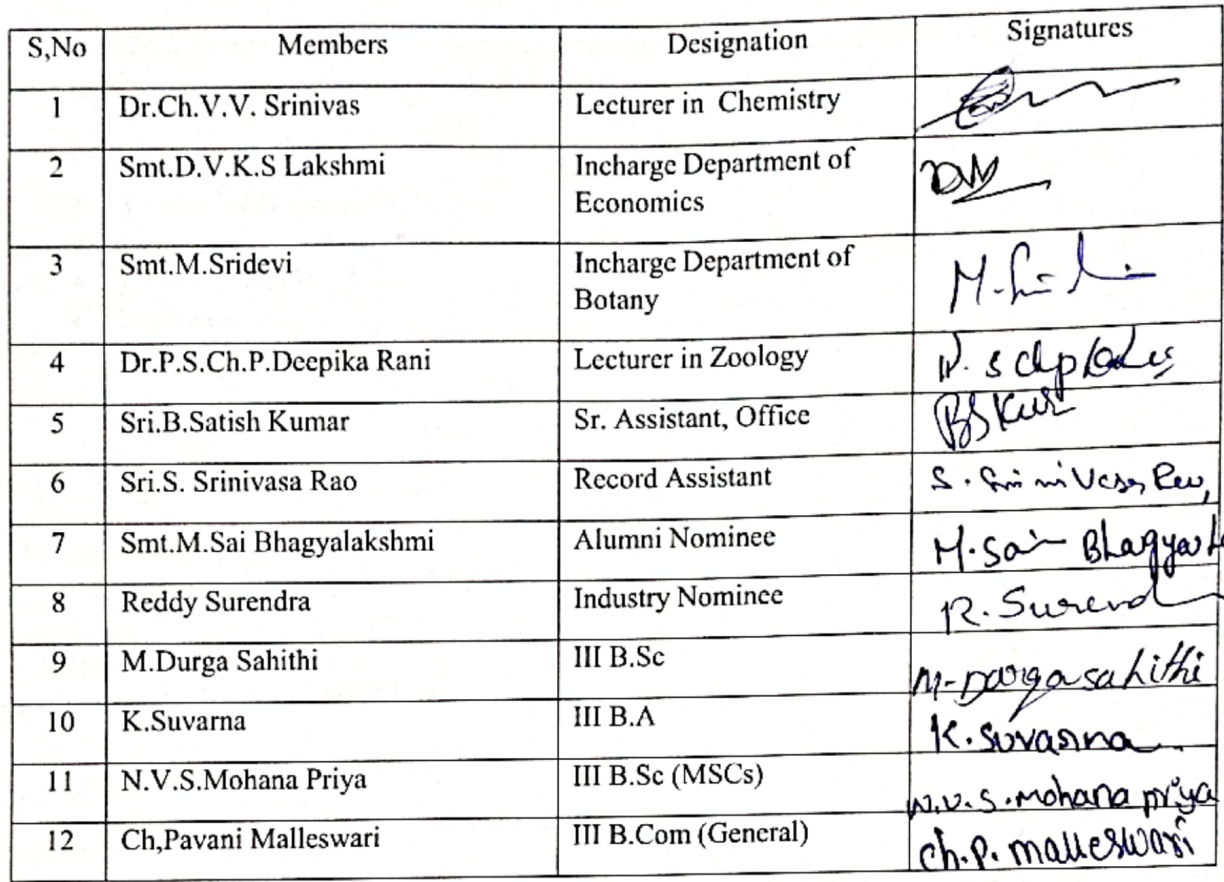 S,No Members Designation Signatures
1 Dr.Ch.V.V. Srinivas Lecturer in Chemistry
2 Smt.D.V.K.S Lakshmi Incharge Department of
Economics
3 Smt.M.Sridevi Incharge Department of
Botany
4 Dr.P.S.Ch.P.Deepika Rani Lecturer in Zoology
5 Sri.B.Satish Kumar Sr. Assistant, Office
6 Sri.S. Srinivasa Rao Record Assistant S.
7 Smt.M.Sai Bhagyalakshmi Alumni Nominee M.Sai
8 Reddy Surendra Industry Nominee R.
9 M.Durga Sahithi III B.Sc M-Durga sahithi
10 K.Suvarna III B.A K.Suvarna
11 N.V.S.Mohana Priya III B.Sc (MSCs) N.V.S.mohana priya
12 Ch,Pavani Malleswari III B.Com (General) ch.P.malleswari